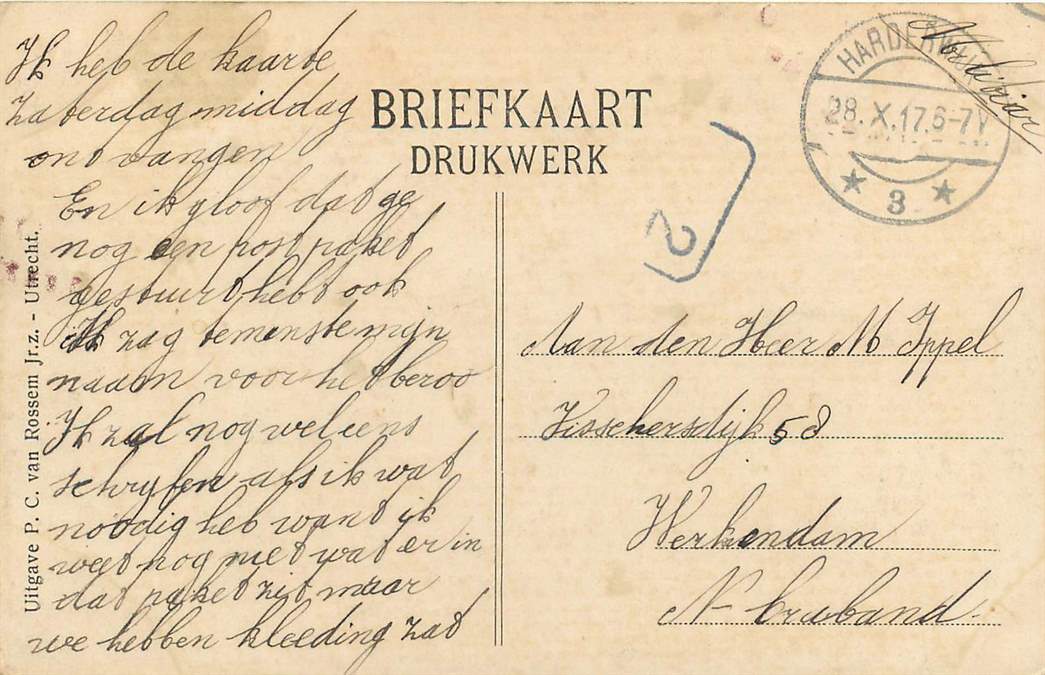 Ik heb de kaarte
Zaterdag middag
ontvangen
En ik gloof dat ge
nog een post paket
gestuurt hebt ook
ik zag temenste mijn
naam voor het beroo
Ik zal nog wel eens
schryfen als ik wat
noodig heb want ik
weet nog niet wat er in
dat paket zit maar
we hebben kleeding zat
Uitgave P. C. van Rossem Jr.z. - Utrecht.
BRIEFKAART
DRUKWERK
HARDERWIJK
28.X.17.6-7V
3
2
Aan den Heer M Ippel
Visschersdijk 58
Werkendam
N- braband